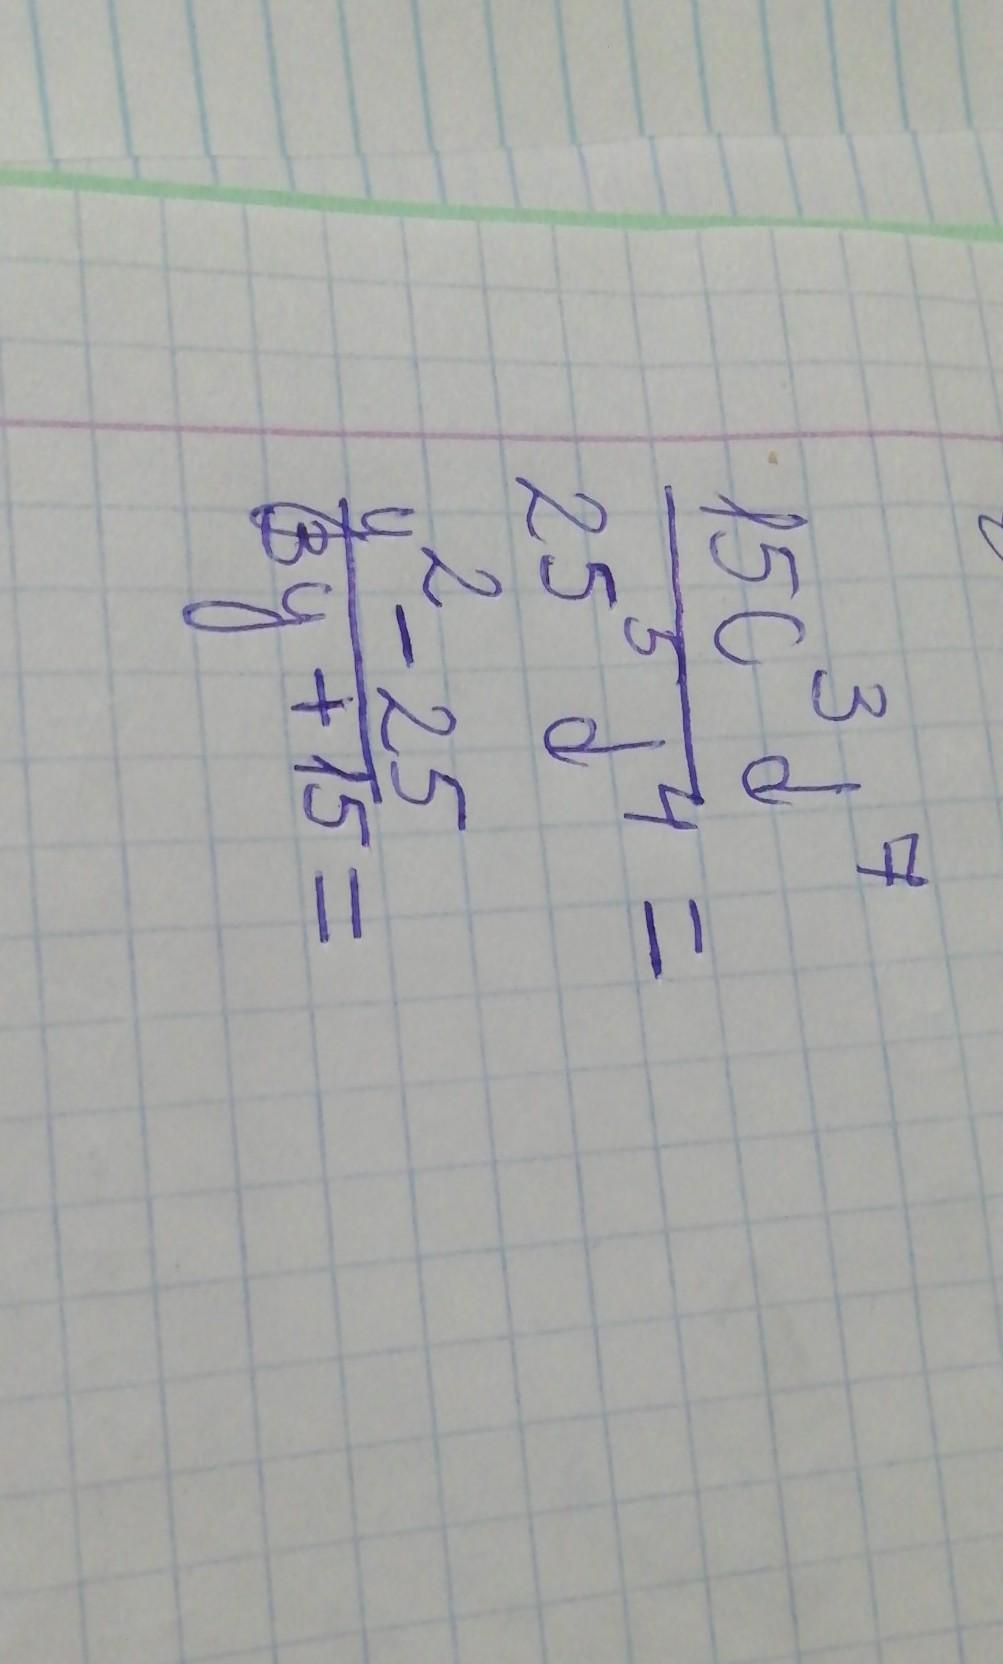 15c³d⁷
25⁵d⁴ =
y² - 25
3y + 15 =